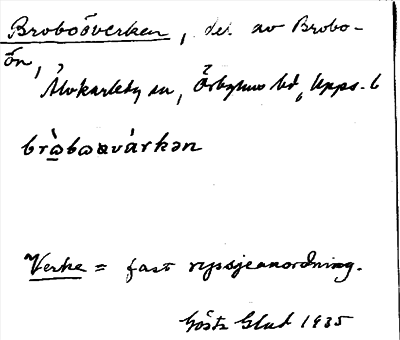 Broboöverken, del av Brobo-
ön,
Älvkarleby sn, Örbyhus hd, Upps. l
bròbωωvárkən
Verke = fast ryssjeanordning.
Gösta Glad 1935